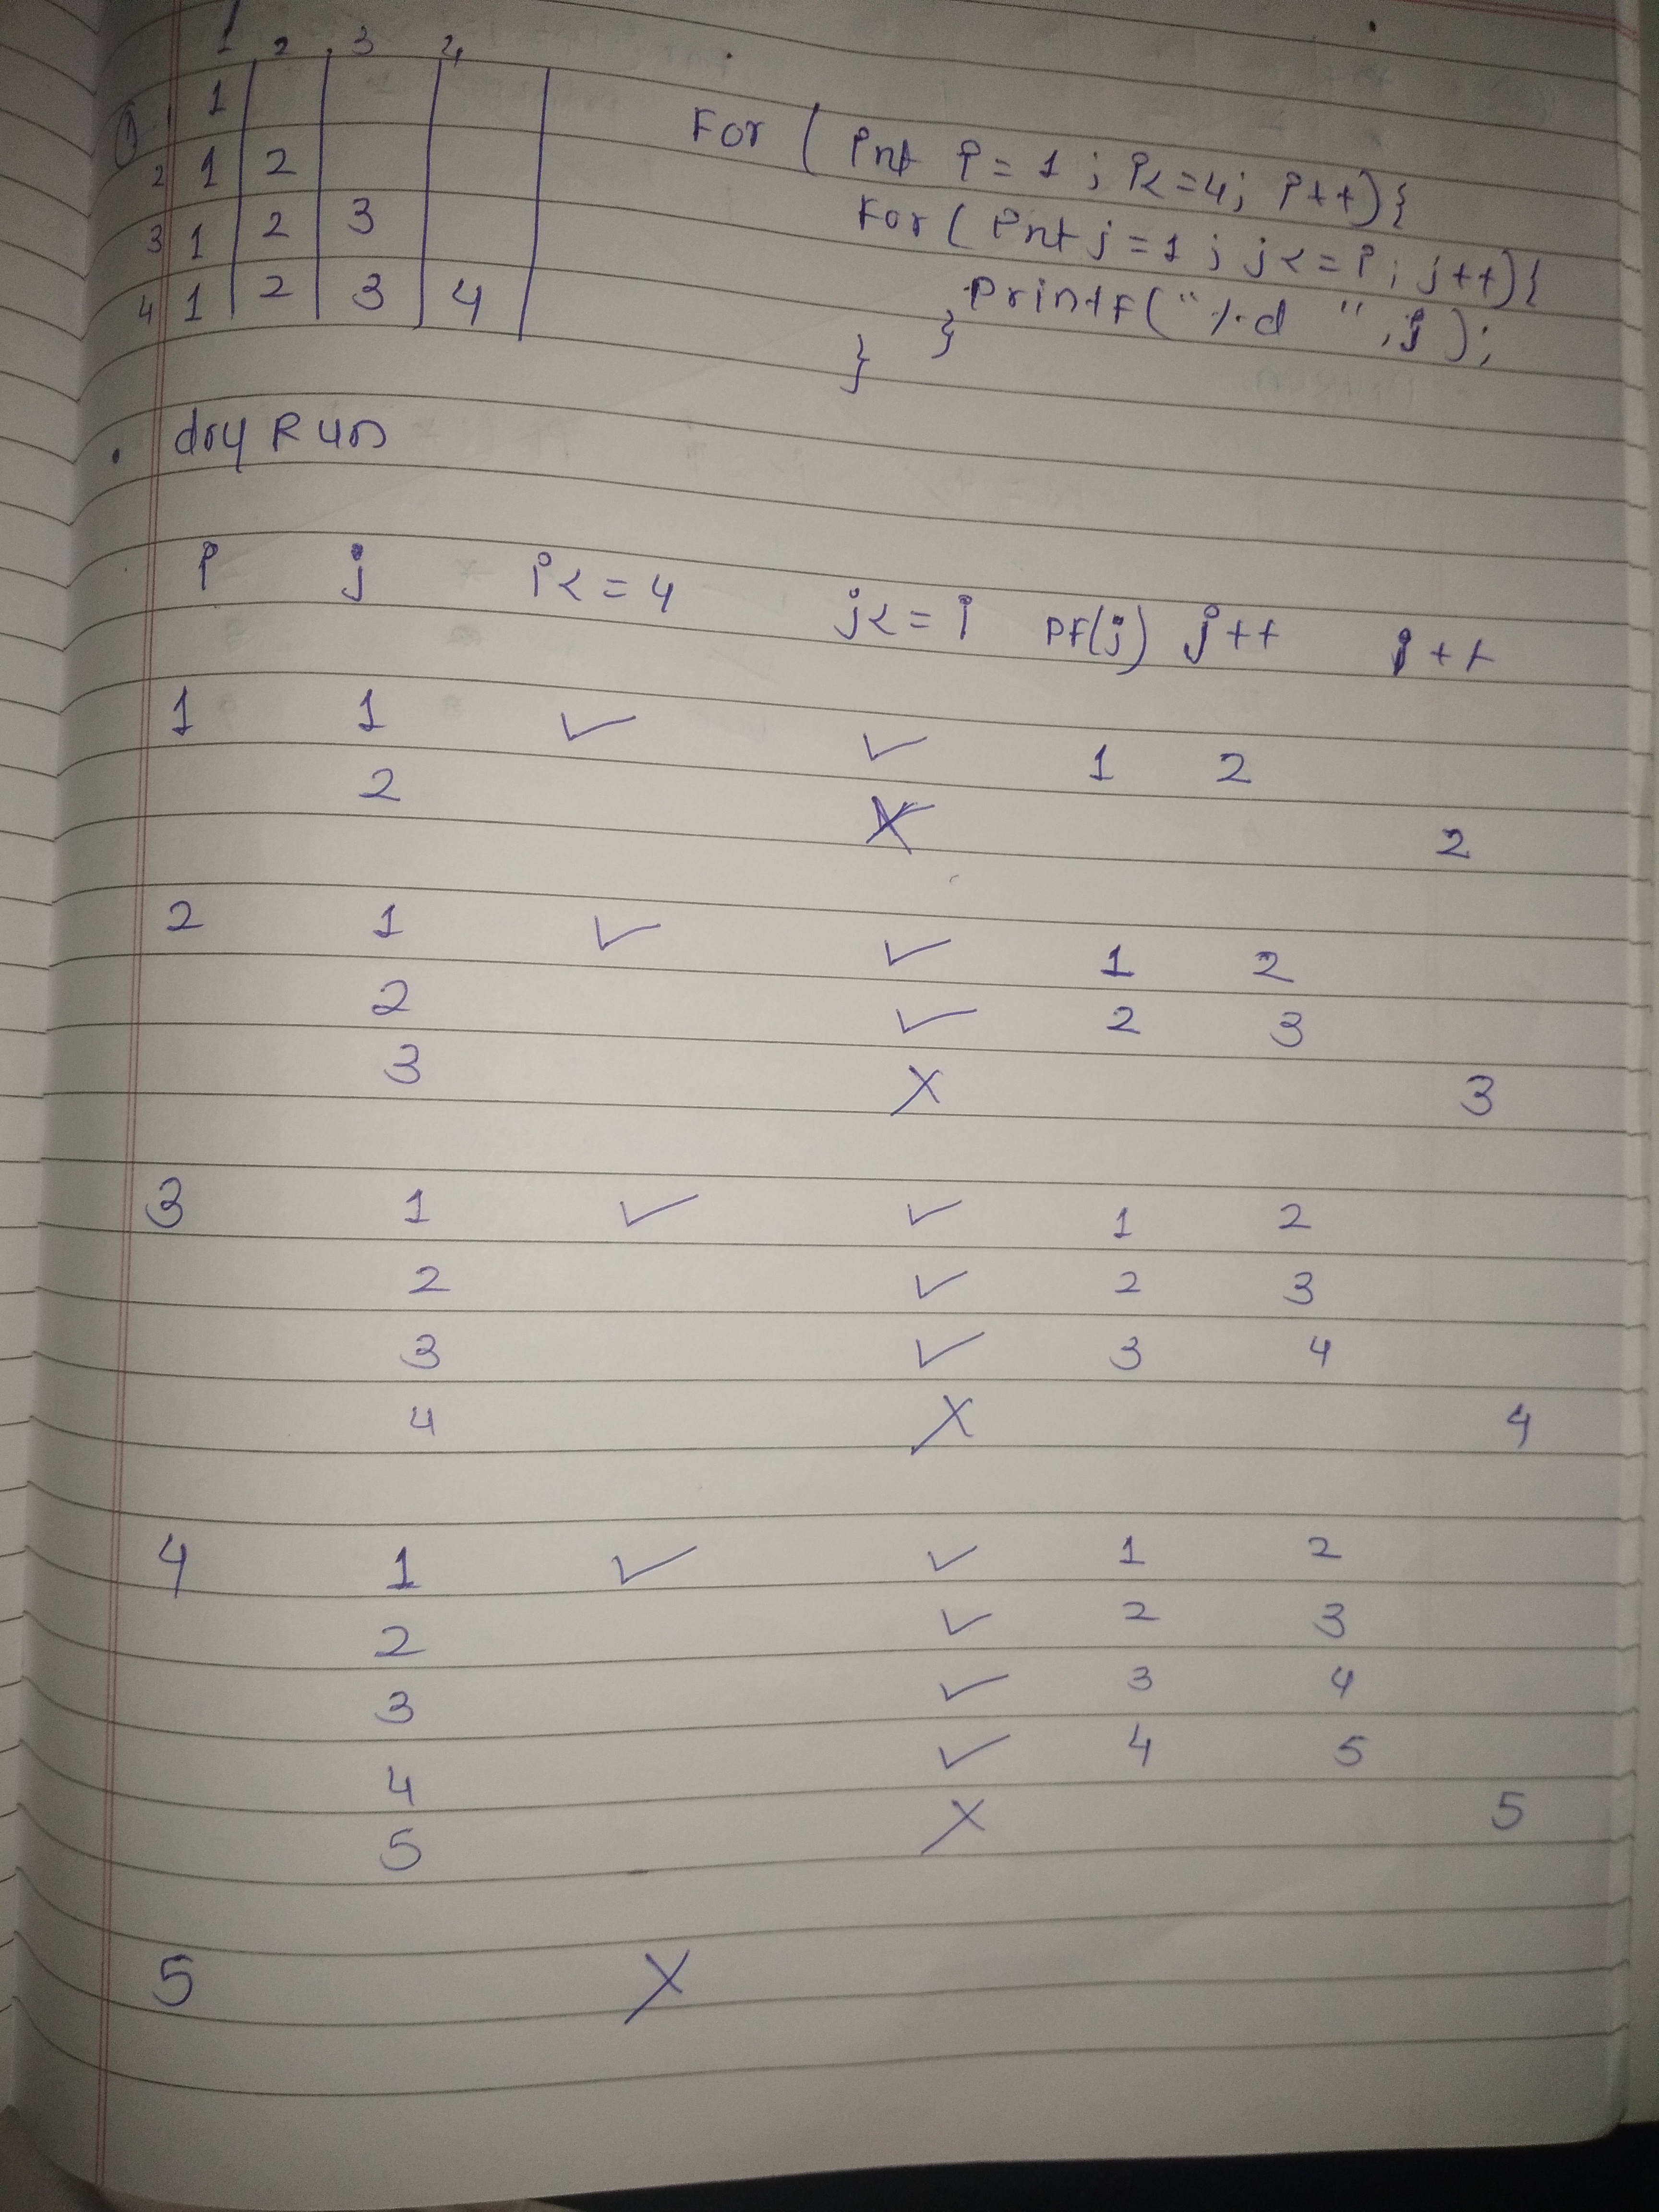 1 2 3 4
① 1
2 1 2
3 1 2 3
4 1 2 3 4
For ( int i = 1 ; i <= 4 ; i++) {
For ( int j = 1 ; j <= i ; j++) {
printf ( "%d ", j ) ;
}
}
. dry Run
i j i <= 4 j <= i Pf(j) j++ i++
1 1 ✓ ✓ 1 2
2 X 2
2 1 ✓ ✓ 1 2
2 ✓ 2 3
3 X 3
3 1 ✓ ✓ 1 2
2 ✓ 2 3
3 ✓ 3 4
4 X 4
4 1 ✓ ✓ 1 2
2 ✓ 2 3
3 ✓ 3 4
4 ✓ 4 5
5 X 5
5 X